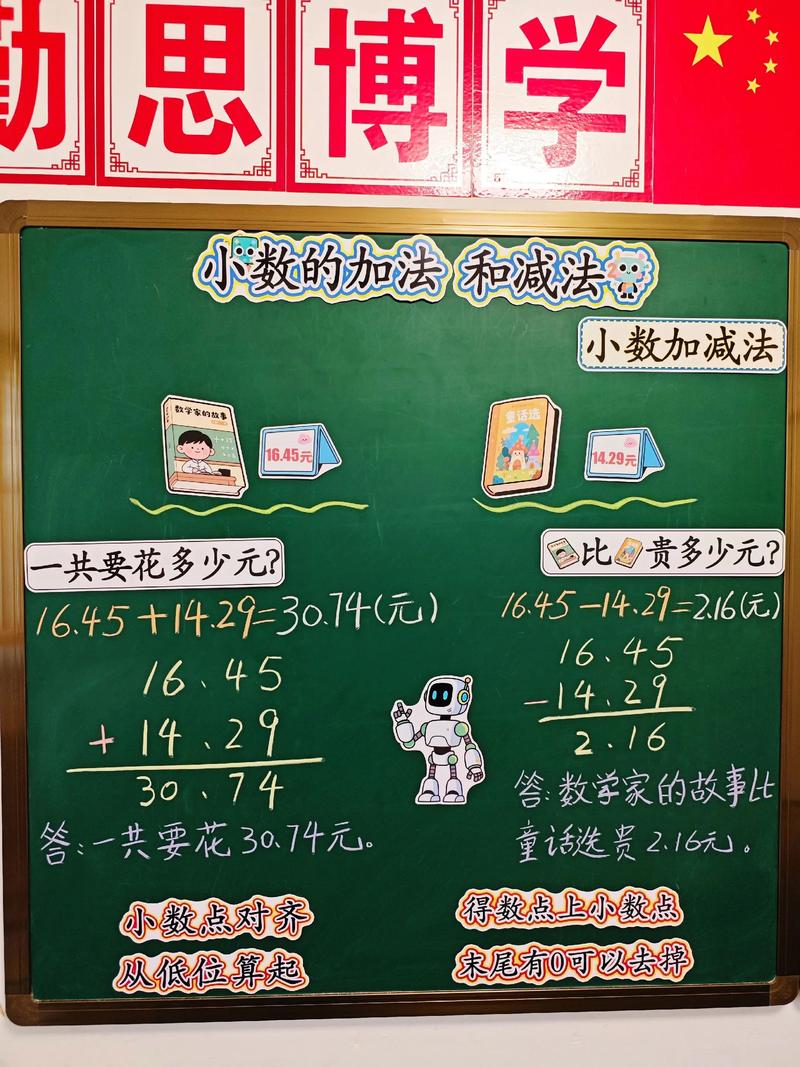 勤思博学
小数的加法 和减法
小数加减法
数学家的故事
16.45元
童话选
14.29元
一共要花多少元?
16.45+14.29=30.74(元)
16.45
+14.29
30.74
答:一共要花30.74元。
比 贵多少元?
16.45-14.29=2.16(元)
16.45
-14.29
2.16
答:数学家的故事比
童话选贵2.16元。
小数点对齐
从低位算起
得数点上小数点
末尾有0可以去掉